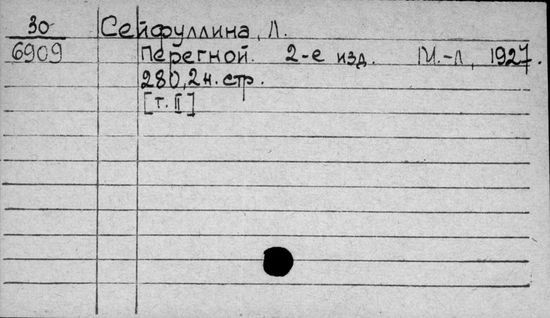 30 Сейфуллина, Л.
6909 Перегной. 2-е изд. М.-Л, 1927.
280,2н.стр.
[т.II]